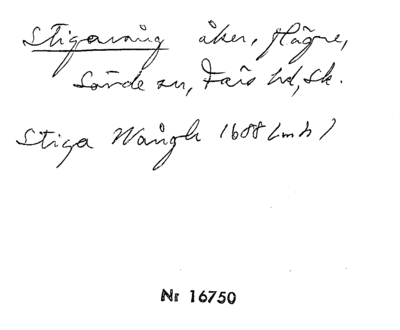 Stigavång åker, Hägre,
Sörde sn, Fais hd, Sk.
Stiga Wångh 1688 (mh)
Nr 16750